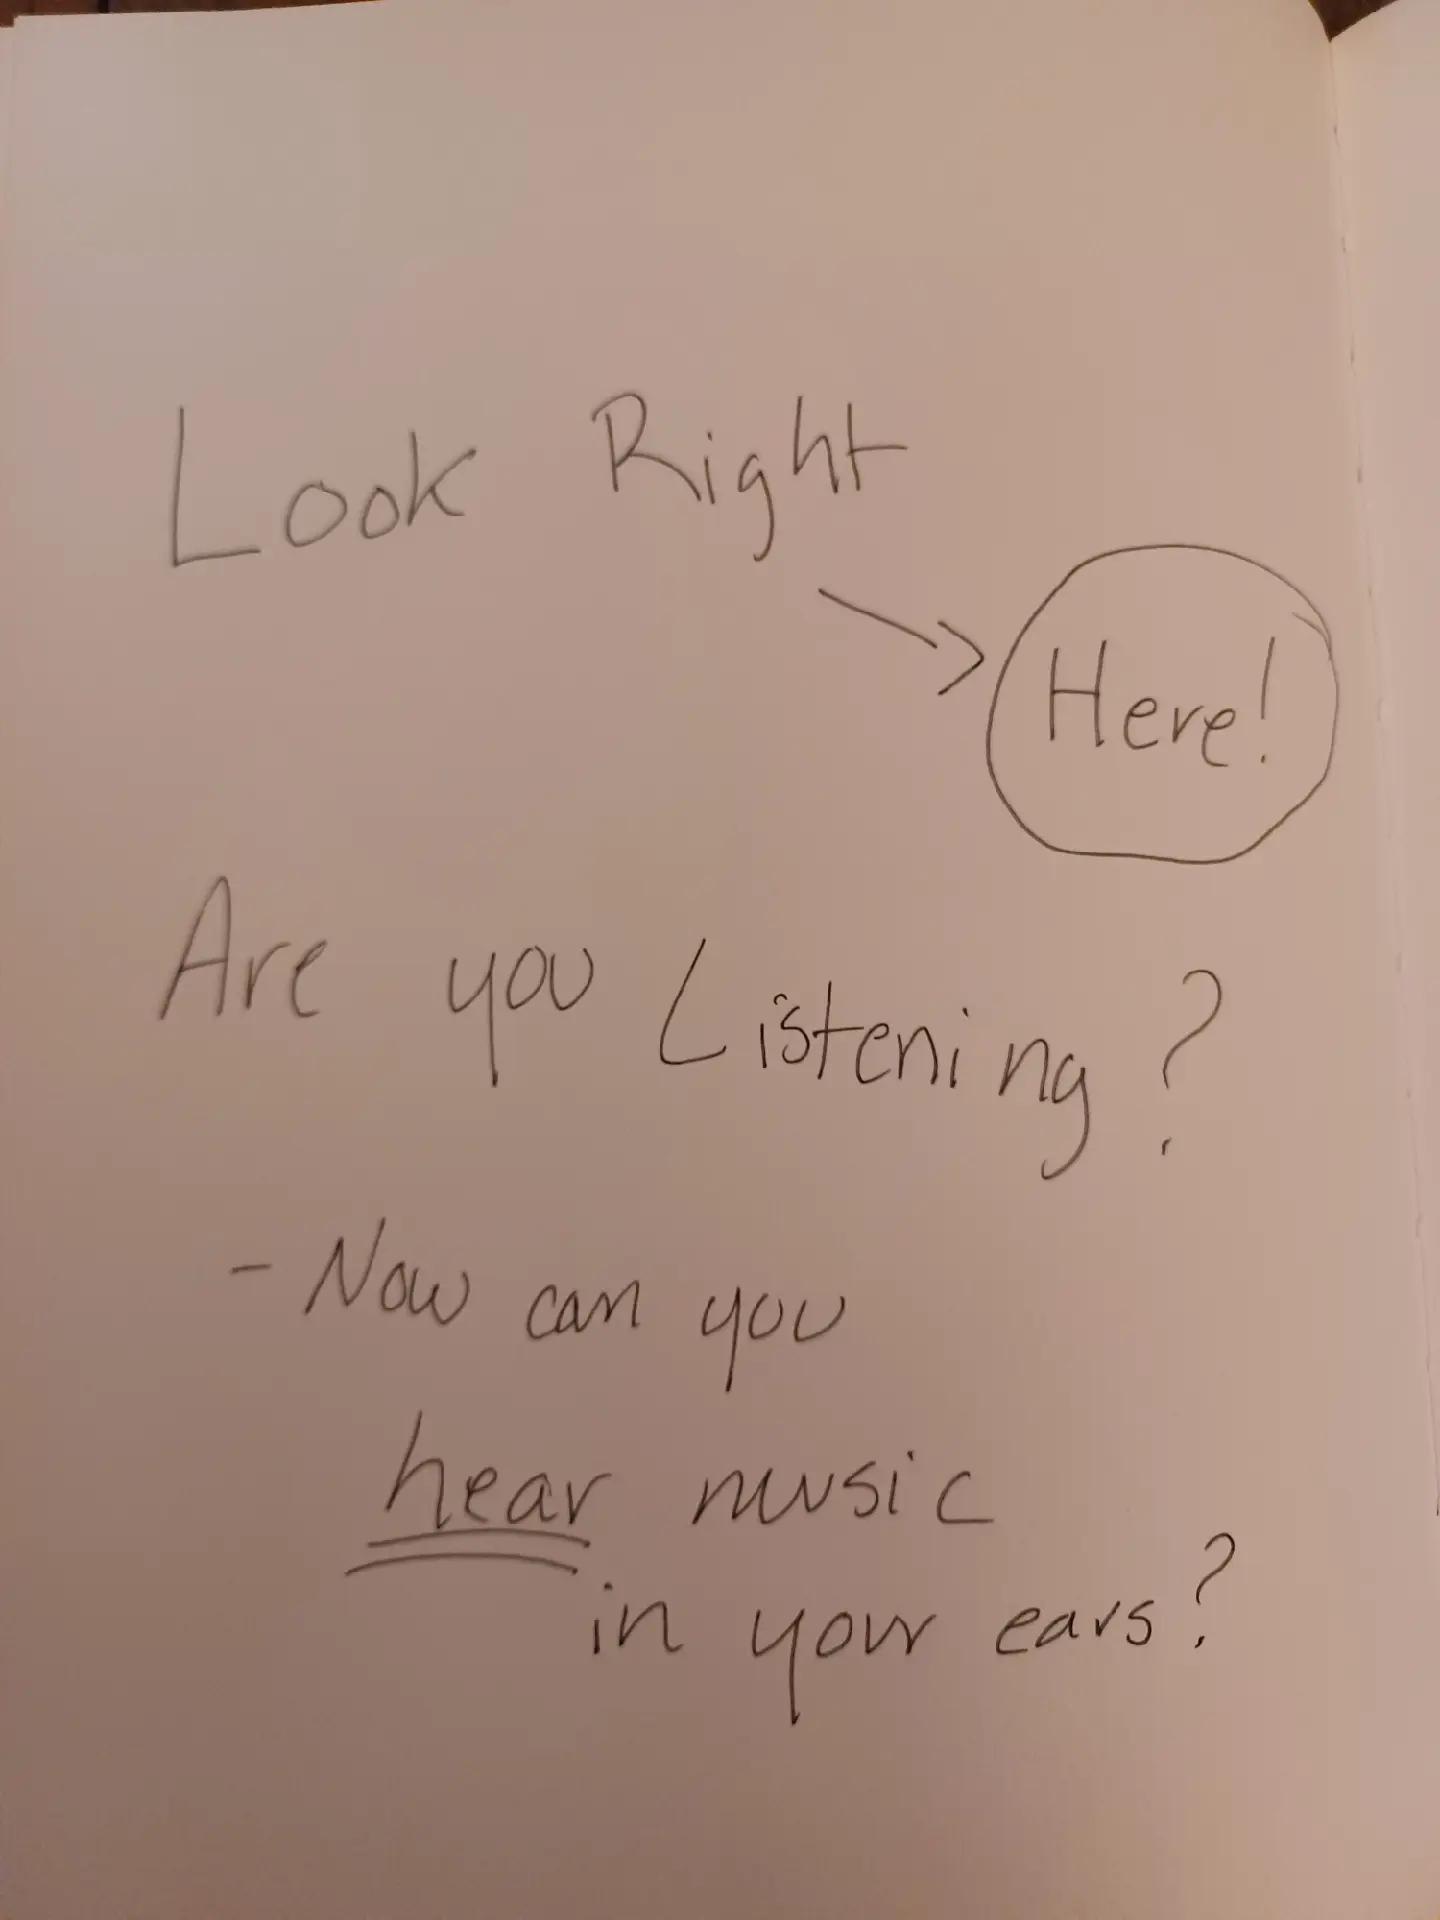 Look Right
Here!
Are you Listening?
- Now can you
hear music
in your ears?